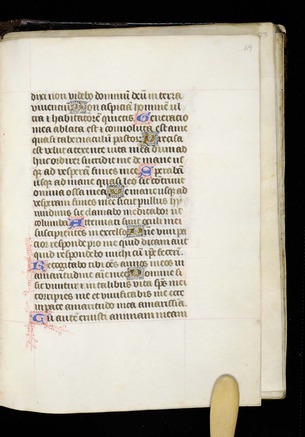 dixi non videbo dominum deu in terra
viuencium Non aspiciam hominem ul
tra et habitatorem quietis Generacio
mea ablata est et conuoluta est a me
quasi tabernaculu pastor Precisa
est velut a texente vita mea dum ad
huc ordirer succidit me de mane us
qz ad vesperam finies me Sperabam
usqz ad mane quasi leo sic contriuit
omnia ossa mea De mane usqz ad
vesperam finies me sicut pullus hy
rundinis sic clamabo meditabor ut
columba Attenuati sunt oculi mei
suspicientes in excelso Domine vim pacia
or responde pro me quid dicam aut
quid respondebit michi cum ipse fecerit
Recogitabo tibi oes annos meos in
amaritudine aie mee Domine si
sic viuitur et in talibus vita sps mei
corripies me et viuificabis me ecce
in pace amaritudo mea amarissima
Tu aute eruisti animam meam